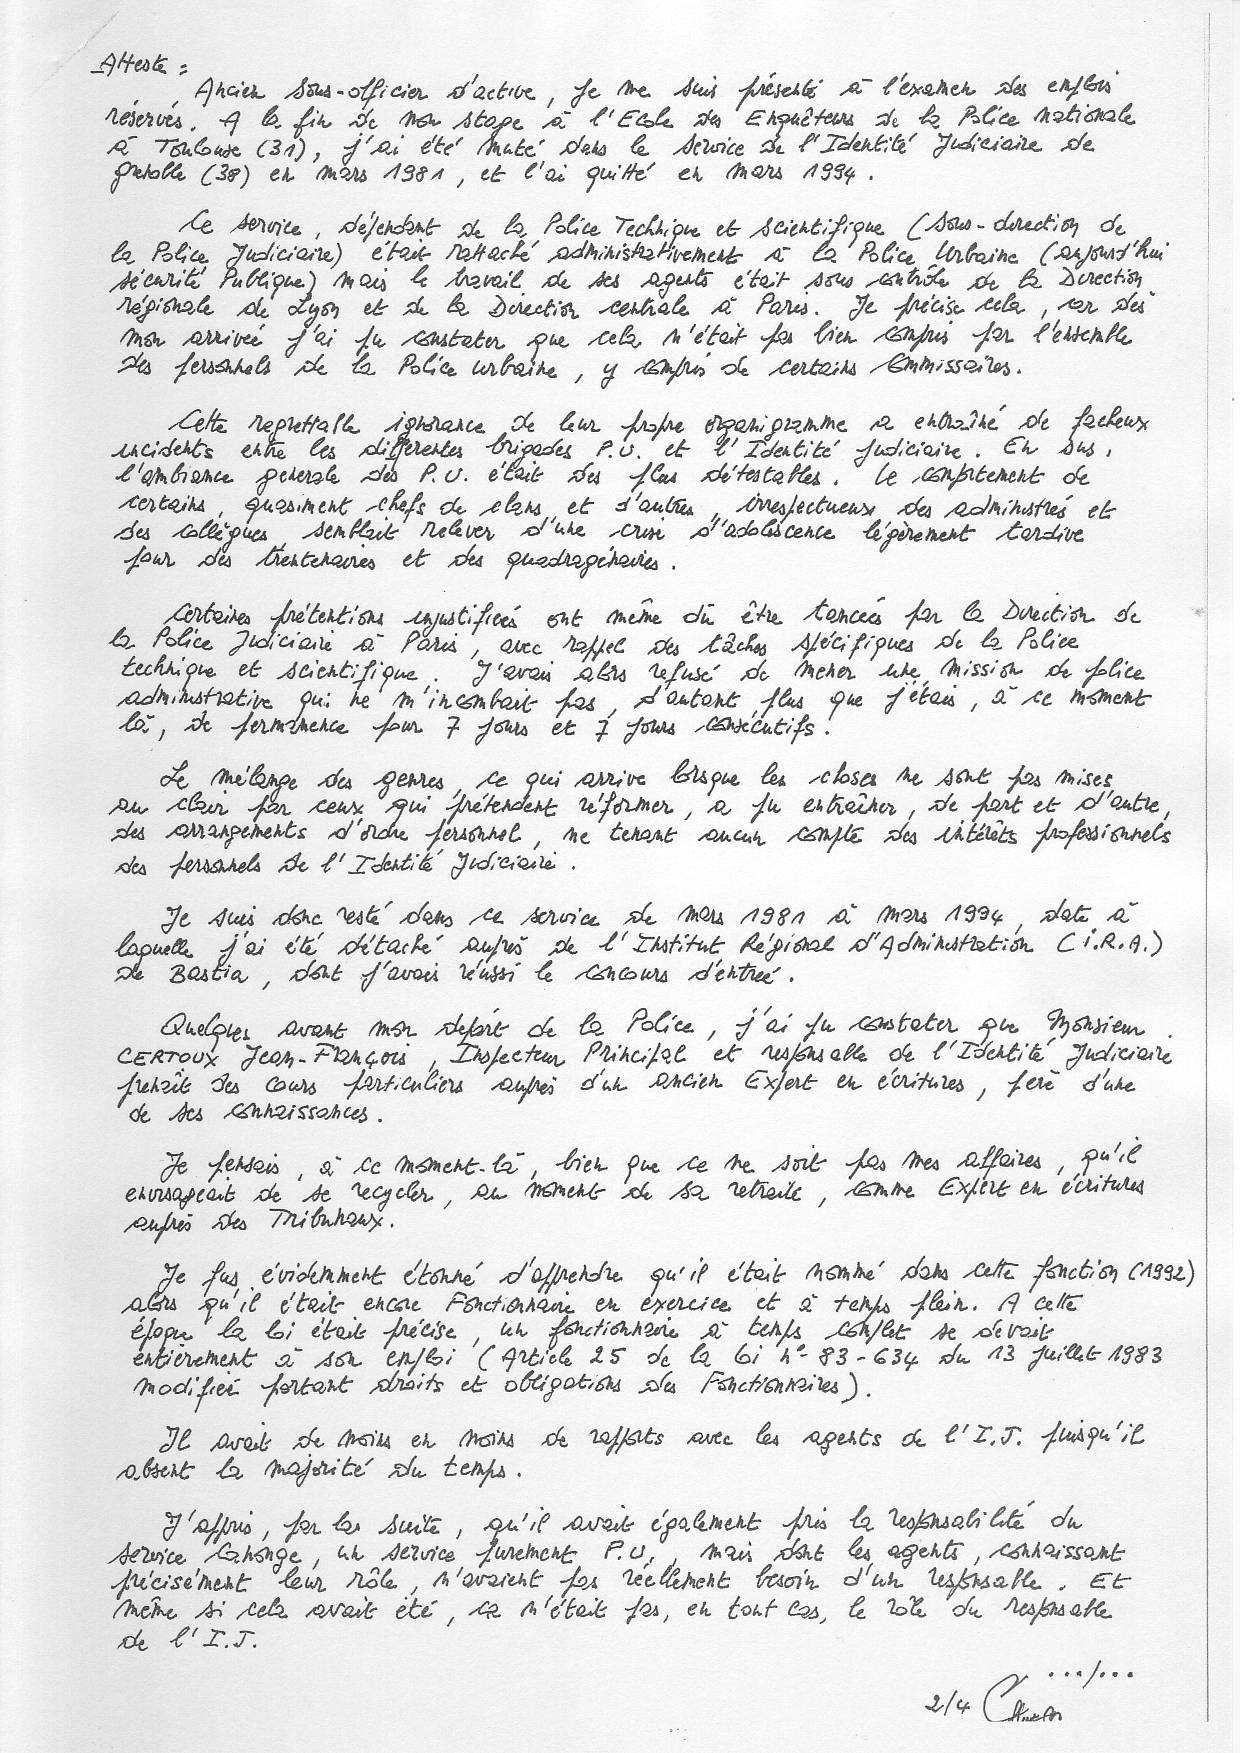 Atteste :
Ancien sous-officier d'active, je me suis présenté à l'examen des emplois
réservés. A la fin de mon stage à l'Ecole des Enquêteurs de la Police nationale
à Toulouse (31), j'ai été muté dans le service de l'Identité Judiciaire de
Grenoble (38) en mars 1981, et l'ai quitté en mars 1994.
Ce service, dépendant de la Police Technique et scientifique (sous-direction de
la Police Judiciaire) était rattaché administrativement à la Police Urbaine (aujourd'hui
sécurité Publique) mais le travail de ses agents était sous contrôle de la Direction
régionale de Lyon et de la Direction centrale à Paris. Je précise cela, car dès
mon arrivée j'ai pu constater que cela n'était pas bien compris par l'ensemble
des personnels de la Police Urbaine, y compris de certains Commissaires.
Cette regrettable ignorance de leur propre organigramme a entraîné de facheux
incidents entre les différentes brigades P.U. et l'Identité Judiciaire. En sus,
l'ambiance generale des P.U. était des plus détestables. Le comportement de
certains, quasiment chefs de clans et d'autres, irrespectueuse des administrés et
des collègues, semblait relever d'une crise d'adolescence légèrement tardive
pour des trentenaires et des quadragénaires.
Certaines prétentions injustifiées ont même dû être tancées par la Direction de
la Police Judiciaire à Paris, avec rappel des tâches spécifiques de la Police
technique et scientifique. J'avais alors refusé de mener une mission de police
administrative qui ne m'incombait pas, d'autant plus que j'étais, à ce moment
là, de permanence pour 7 jours et 7 jours consécutifs.
Le mélange des genres, ce qui arrive lorsque les choses ne sont pas mises
au clair par ceux qui prétendent réformer, a pu entraîner, de part et d'autre,
des arrangements d'ordre personnel, ne tenant aucun compte des intérêts professionnels
des personnels de l'Identité Judiciaire.
Je suis donc resté dans ce service de mars 1981 à mars 1994, date à
laquelle j'ai été détaché auprès de l'Institut Régional d'Administration (I.R.A.)
de Bastia, dont j'avais réussi le concours d'entrée.
Quelques avant mon départ de la Police, j'ai pu constater que Monsieur
CERTOUX Jean-François, Inspecteur Principal et responsable de l'Identité Judiciaire
prenait des cours particuliers auprès d'un ancien Expert en écritures, père d'une
de ses connaissances.
Je pensais, à ce moment-là, bien que ce ne soit pas mes affaires, qu'il
envisageait de se recycler, au moment de sa retraite, comme Expert en écritures
auprès des Tribunaux.
Je fus évidemment étonné d'apprendre qu'il était nommé dans cette fonction (1992)
alors qu'il était encore Fonctionnaire en exercice et à temps plein. A cette
époque la loi était précise, un fonctionnaire à temps complet se devait
entièrement à son emploi (Article 25 de la loi n° 83-634 du 13 juillet 1983
modifiée portant droits et obligations des Fonctionnaires).
Il avait de moins en moins de rapports avec les agents de l'I.J. puisqu'il
absent la majorité du temps.
J'appris, par la suite, qu'il avait également pris la responsabilité du
service Canonge, un service purement P.U., mais dont les agents, connaissant
précisément leur rôle, n'avaient pas réellement besoin d'un responsable. Et
même si cela avait été, ça n'était pas, en tout cas, le rôle du responsable
de l'I.J.
.../...
2/4